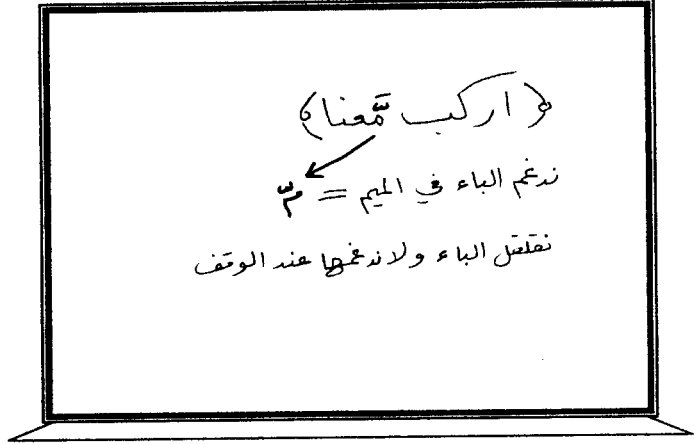 ﴿اركب مَّعنا﴾
ندغم الباء في الميم = مّ
نقلقل الباء ولا ندغمها عند الوقف